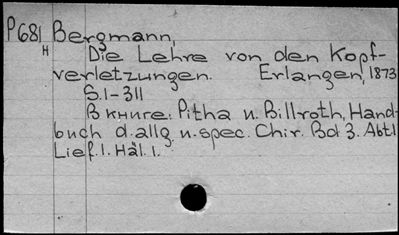 P681 Bergmann,
H Die Lehre von den Kopf-
verletzungen. Erlangen, 1873
S.1-311
В книге: Pitha u. Billroth, Hand-
buch d. allg. u. spec. Chir. Bd 3. Abt.1
Lief. 1. Häl. 1.